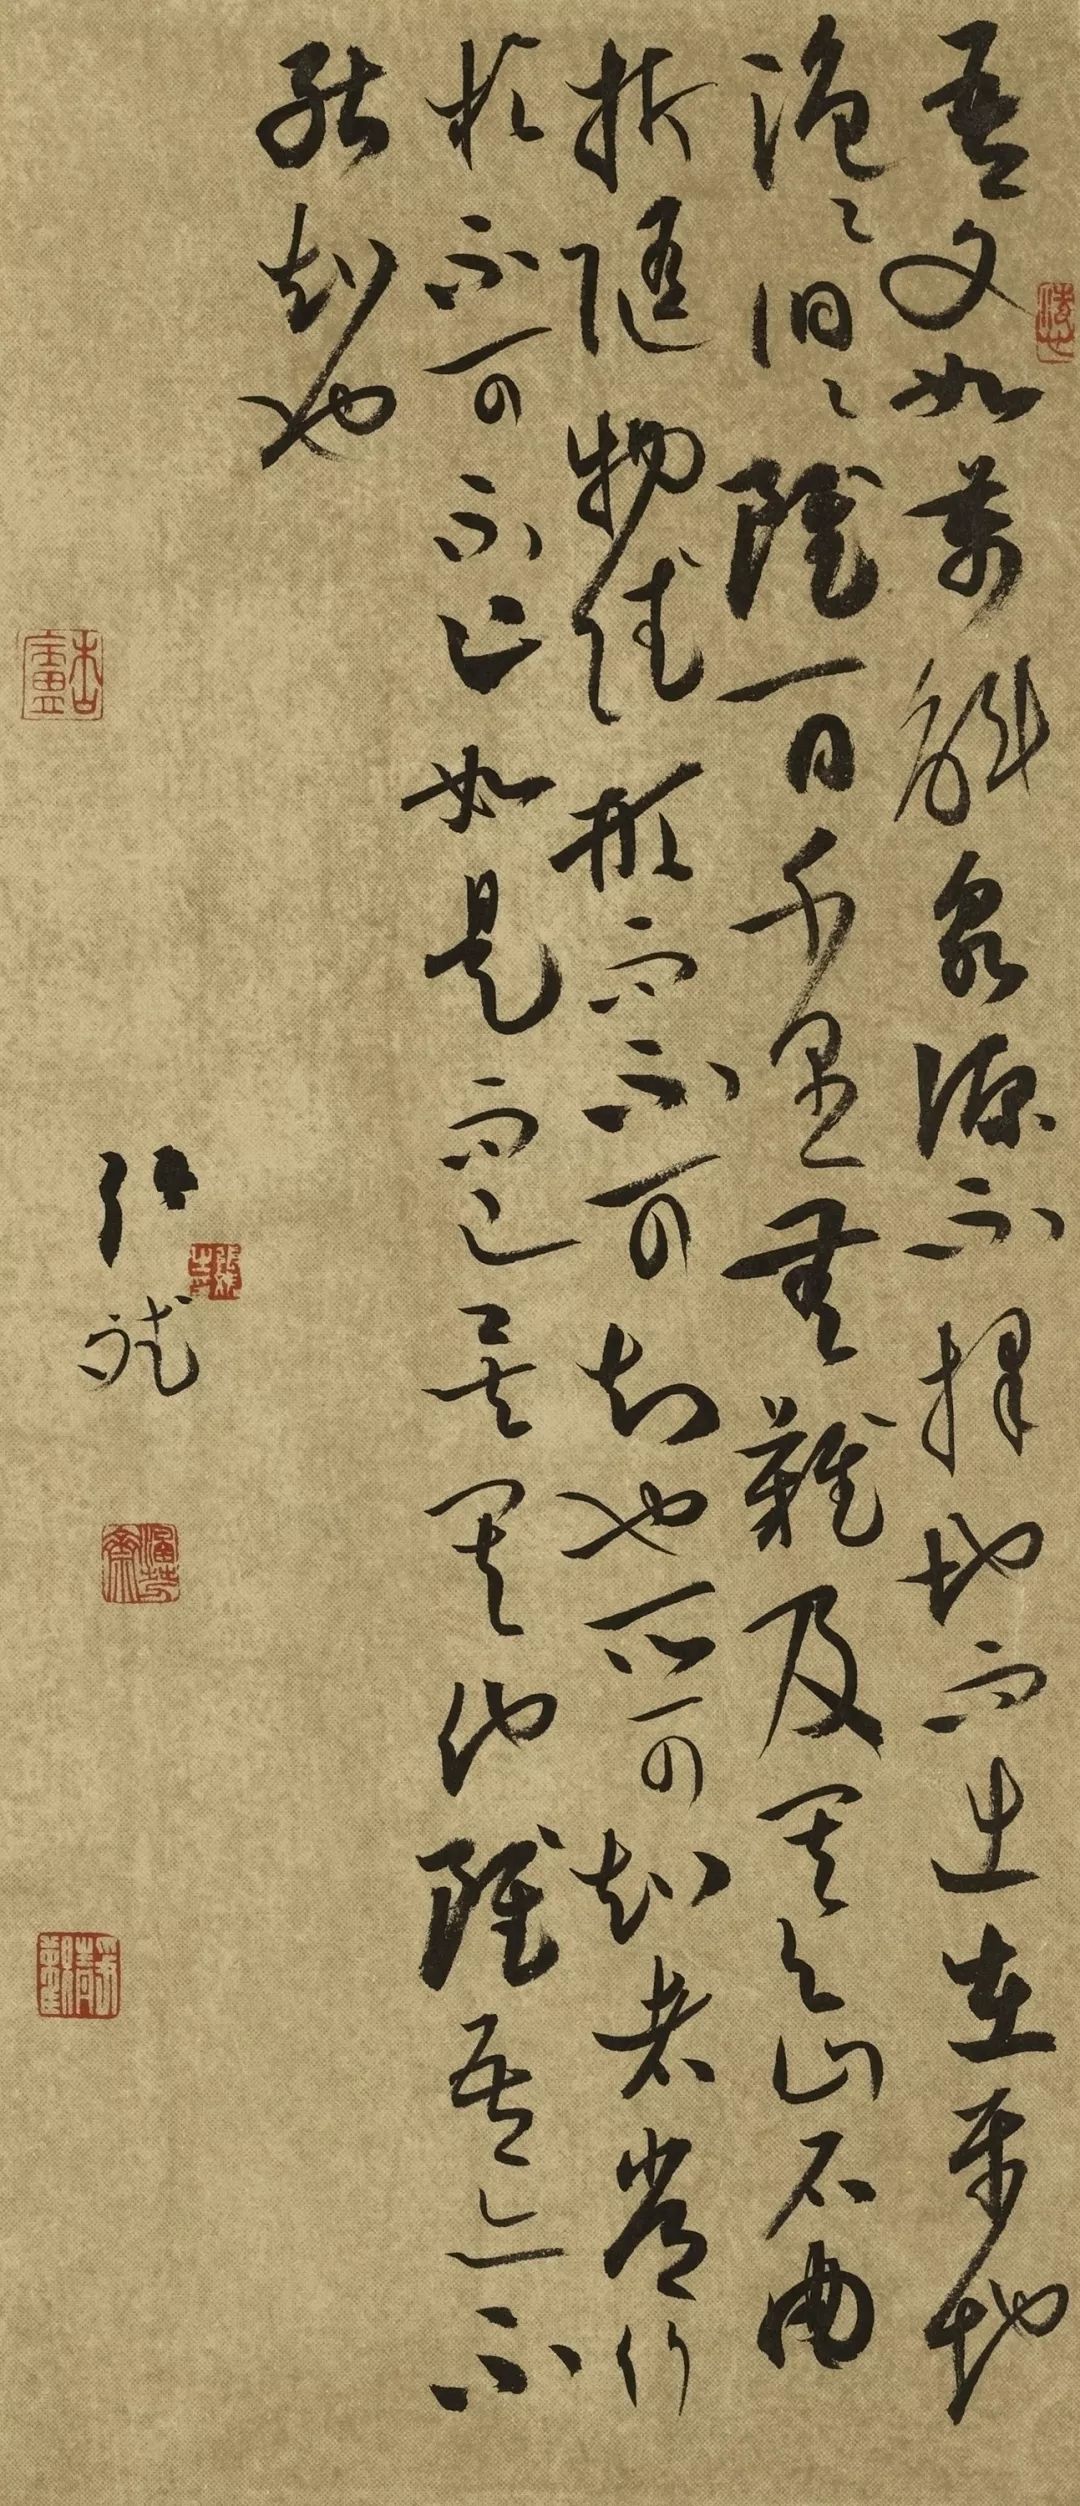 吾文如萬斛泉源不擇地而出在平地
滔〻汩〻雖一日千里無難及其与山石曲
折隨物賦形而不可知也所可知者常行
於不可不止如是而已矣其他雖吾亦不
能知也